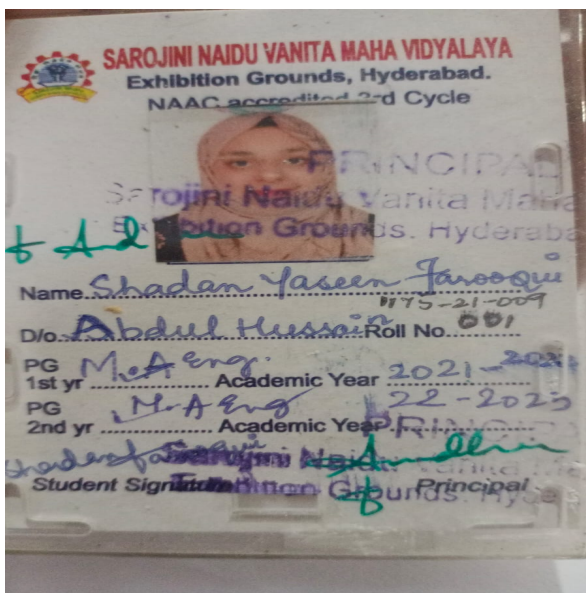 SAROJINI NAIDU VANITA MAHA VIDYALAYA
Exhibition Grounds, Hyderabad.
NAAC accredited 3rd Cycle
PRINCIPAL
Sarojini Naidu Vanita Maha
Exhibition Grounds. Hyderaba
Name Shadan Yaseen Farooqui
1175-21-009
D/o. Abdul Hussain Roll No. 001
PG 1st yr M.A Eng. Academic Year 2021-2022
PG 2nd yr M.A Eng Academic Year 22-2023
Sarojini Naidu Vanita
Student Signature Principal
Exhibition Grounds. Hyde